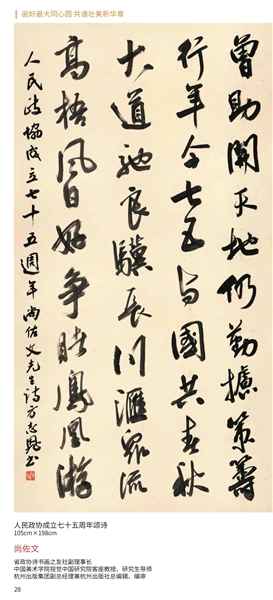 画好最大同心圆 共谱壮美新华章
曾助開天地仍勤攄策籌
行年今七五与國共春秋
大道馳良驥長川匯眾流
高梧風日好爭睹鳳凰游
人民政協成立七十五週年尚佐文先生詩方志
人民政协成立七十五周年颂诗
105cm×198cm
尚佐文
省政协诗书画之友社副理事长
中国美术学院视觉中国研究院客座教授、研究生导师
杭州出版集团副总经理兼杭州出版社总编辑、编审
28